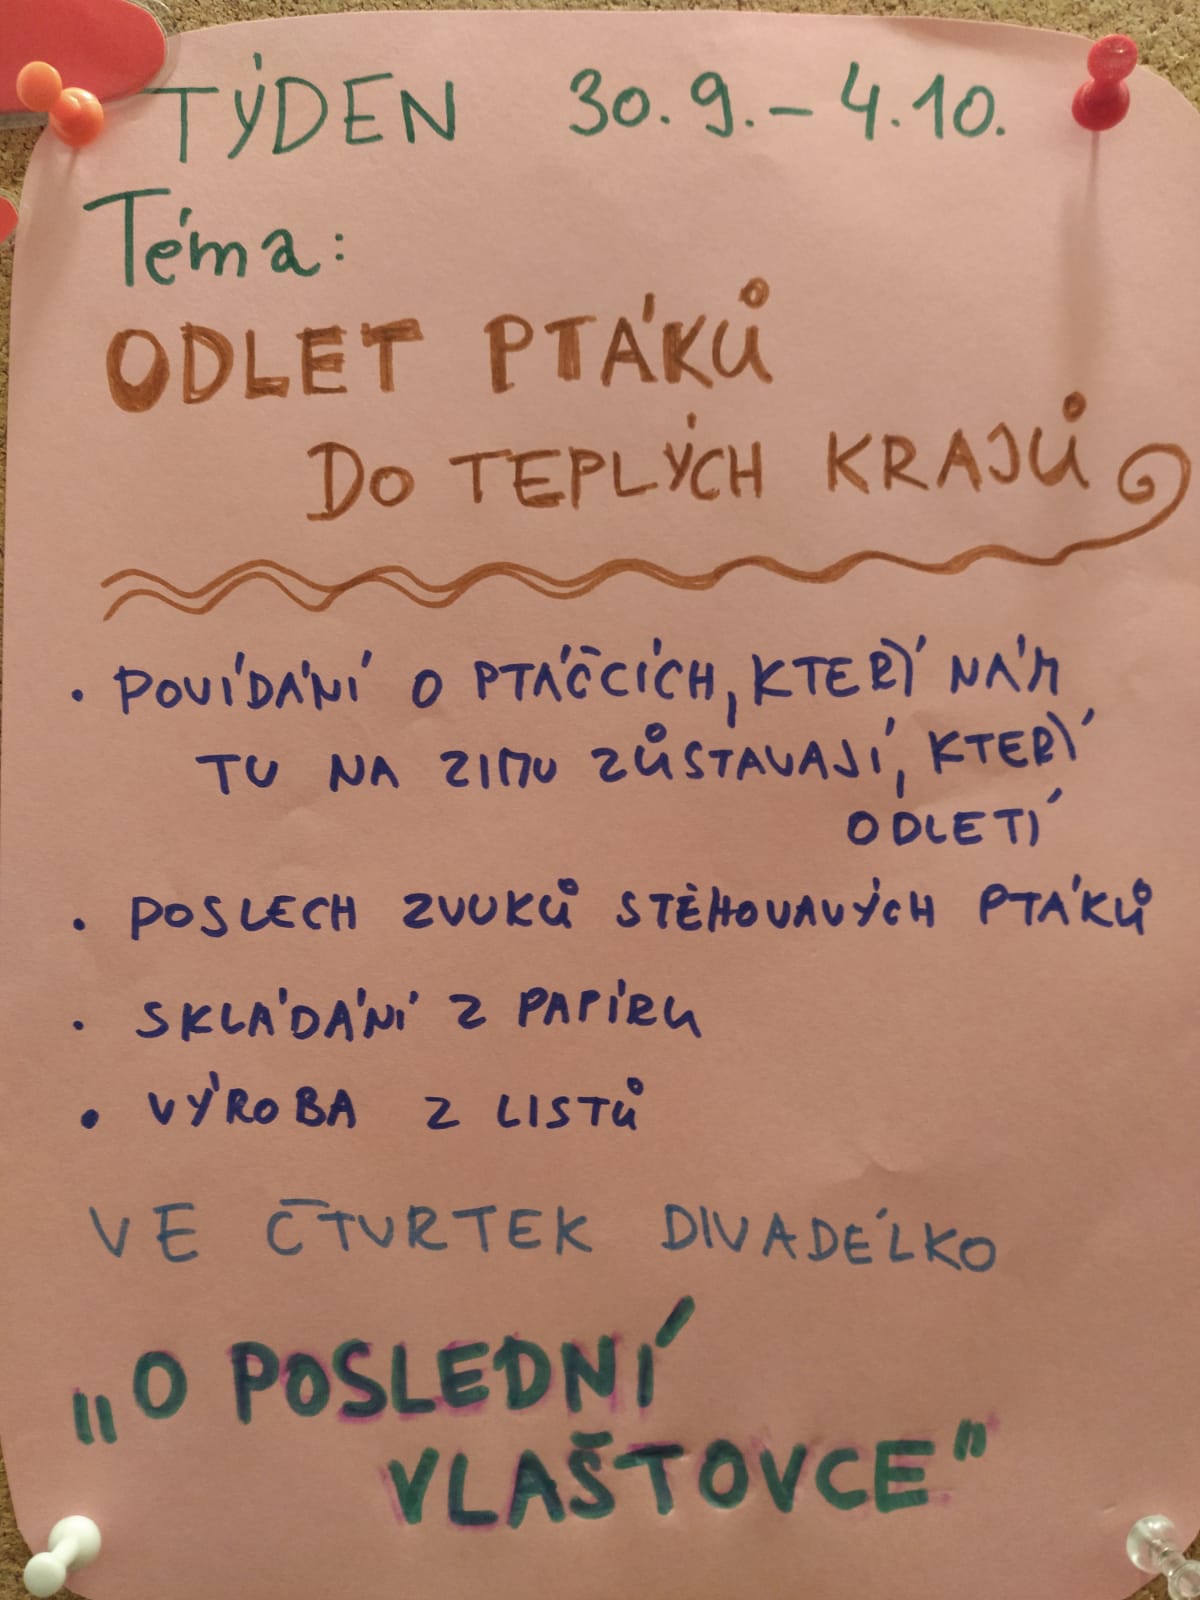 TÝDEN 30.9.-4.10.
Téma:
ODLET PTÁKŮ
DO TEPLÝCH KRAJŮ
• POVÍDÁNÍ O PTÁČCÍCH, KTEŘÍ NÁM
TU NA ZIMU ZŮSTAVAJÍ, KTEŘÍ
ODLETÍ
• POSLECH ZVUKŮ STĚHOVAVÝCH PTÁKŮ
• SKLÁDÁNÍ Z PAPÍRU
• VÝROBA Z LISTŮ
VE ČTVRTEK DIVADÉLKO
„O POSLEDNÍ
VLAŠTOVCE"